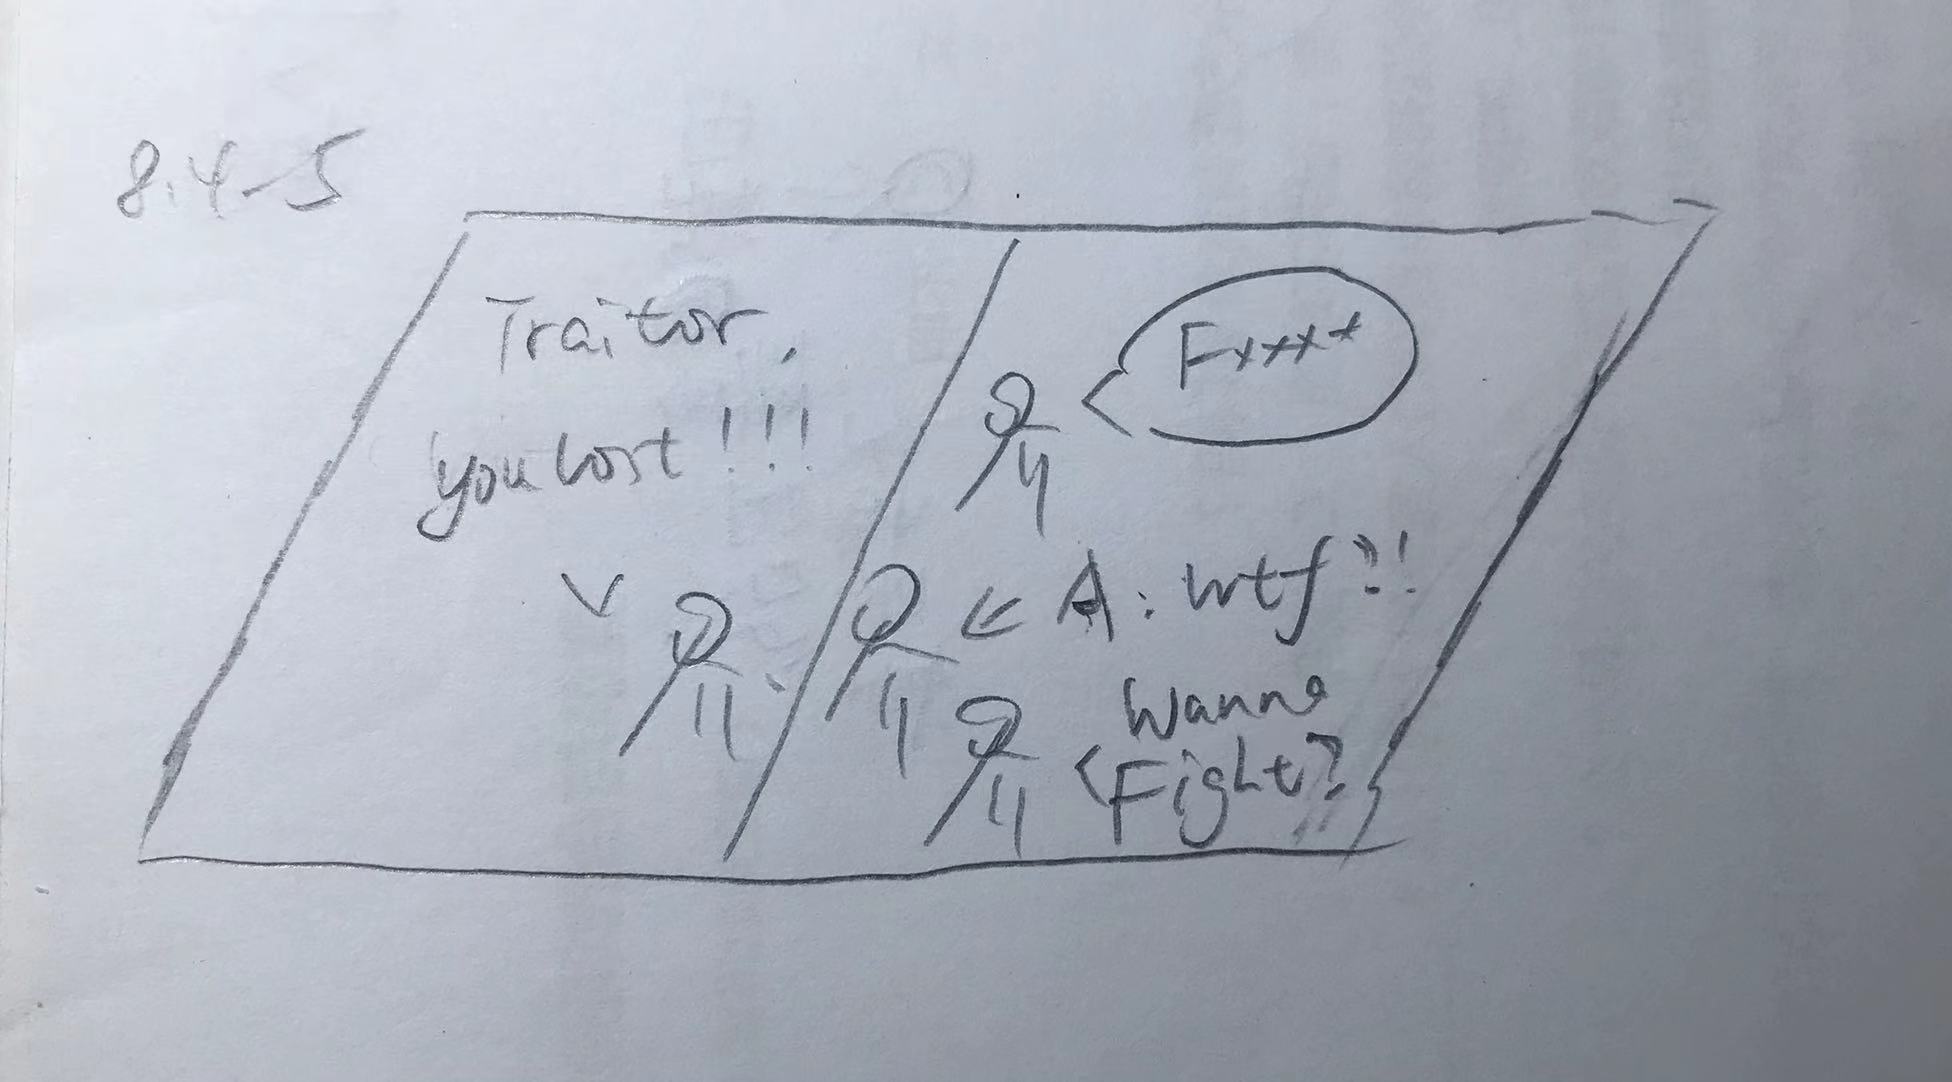 8.4-5
Traitor,
you lost!!!
Fxxxx
A: wtf?!
Wanna
Fight?